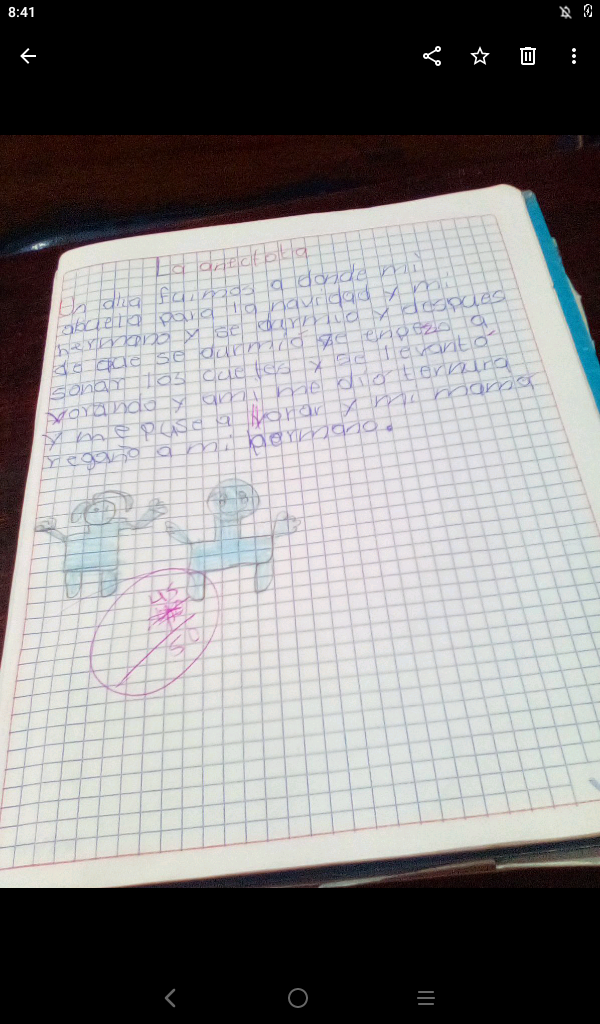 8:41
La anectota
Un dia fuimos a donde mi
abuela para la navidad y mi
hermano y se durmio y despues
de que se durmio se enpezo a
sonar los cuetes y se levantó
yorando y ami me dio ternura
y me puse a llorar y mi mamá
regaño a mi hermano.
45
50